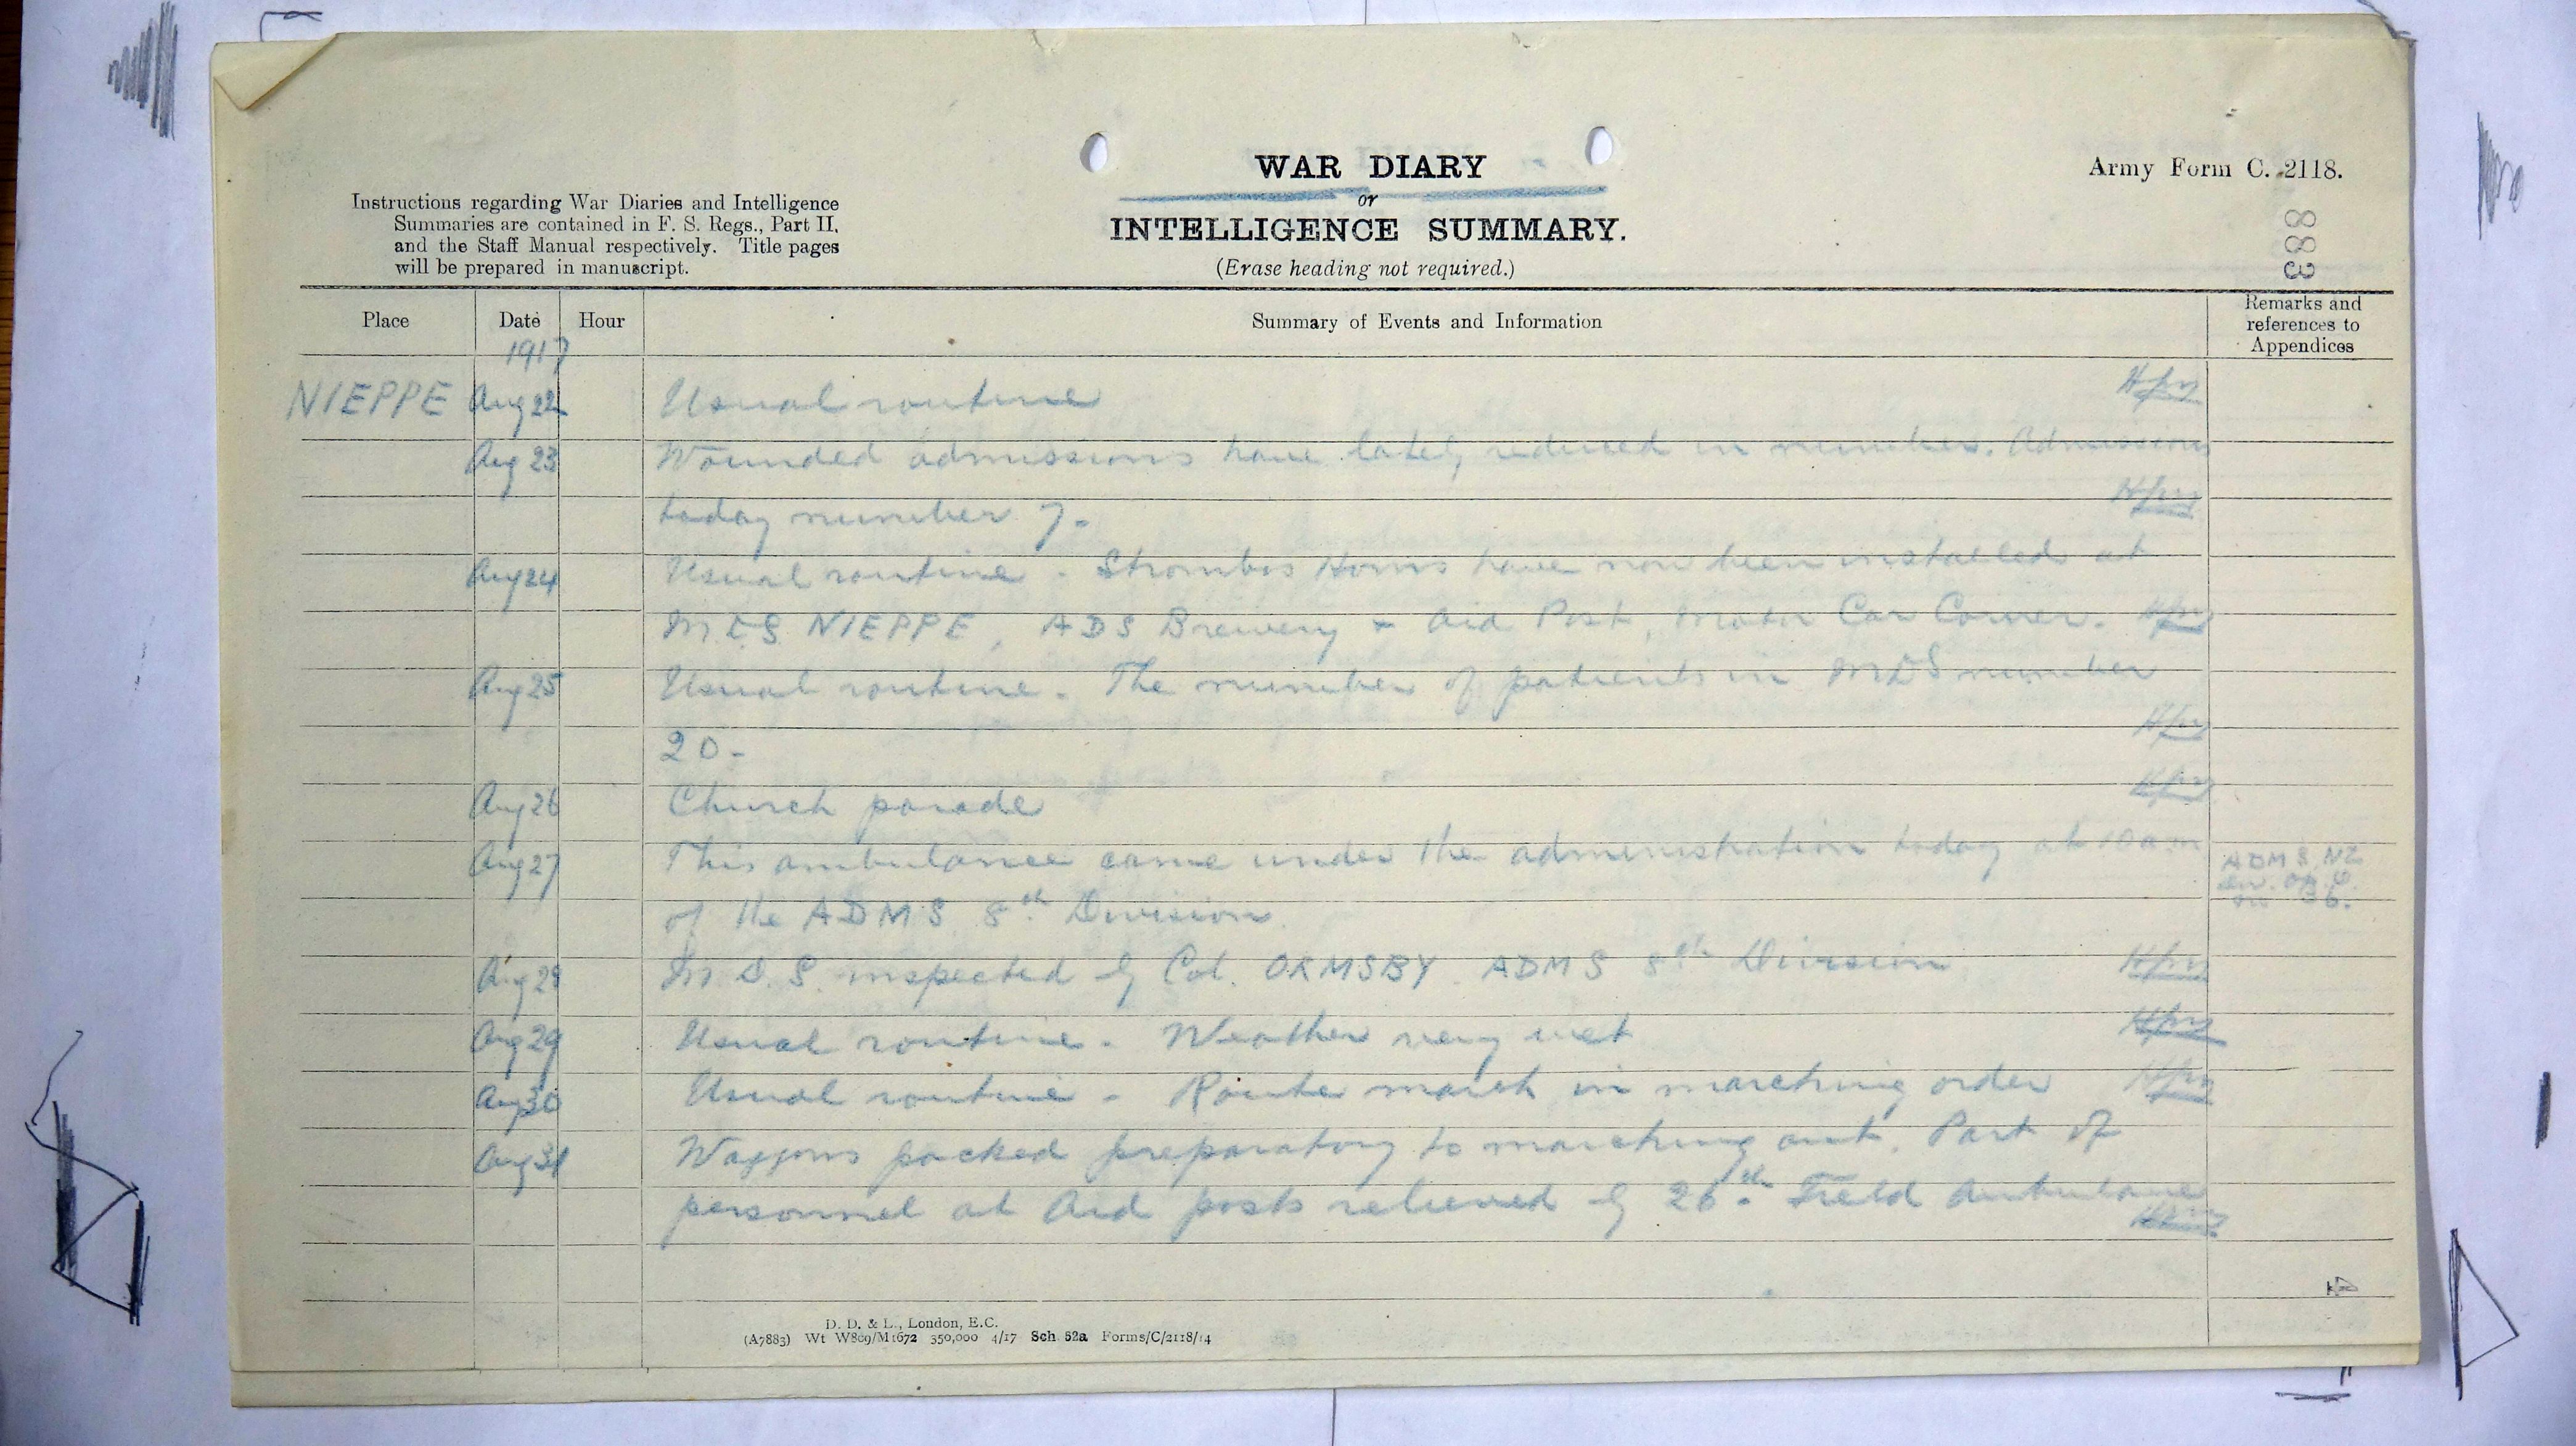 WAR DIARY
or
INTELLIGENCE SUMMARY.
(Erase heading not required.)
Army Form C. 2118.
883
Instructions regarding War Diaries and Intelligence
Summaries are contained in F. S. Regs., Part II,
and the Staff Manual respectively. Title pages
will be prepared in manuscript.
Place Date Hour Summary of Events and Information Remarks and references to Appendices
1917
NIEPPE Aug 22 Usual routine
Aug 23 Wounded admissions have lately reduced in number. Admissions
today number 7.
Aug 24 Usual routine. Strombos Horns have now been installed at
M.D.S NIEPPE, ADS Brewery + Aid Post, Motor Car Corner.
Aug 25 Usual routine. The number of patients in MDS number
20.
Aug 26 Church parade
Aug 27 This ambulance came under the administration today at 10 am ADMS NZ
of the ADMS 8th Division 36.
Aug 28 M.D.S. inspected by Col. ORMSBY ADMS 8th Division
Aug 29 Usual routine. Weather very wet
Aug 30 Usual routine. Route march in marching order
Aug 31 Waggons packed preparatory to marching out. Part of
personnel at Aid posts relieved by 26th Field Ambulance
D. D. & L., London, E.C.
(A7883) Wt W809/M1672 350,000 4/17 Sch. 52a Forms/C/2118/14